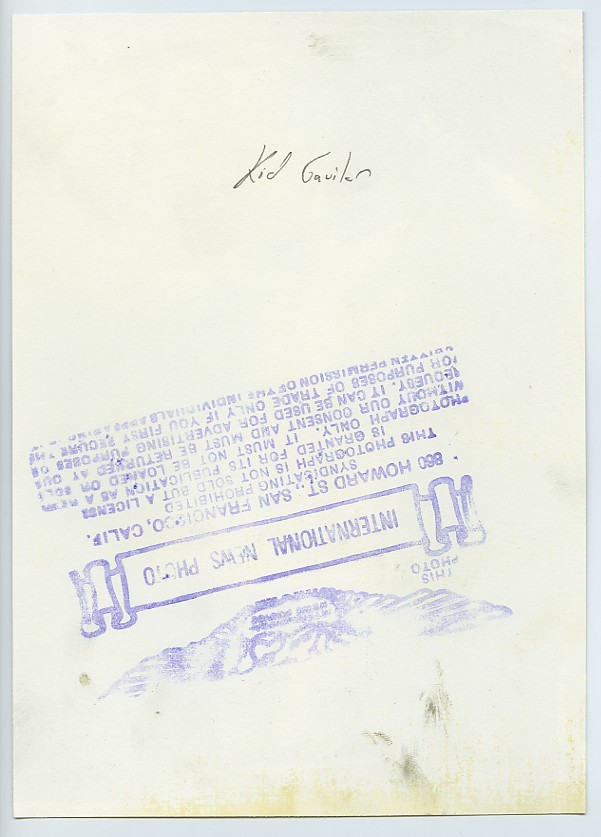 Kid Gavilan
THIS
PHOTO
INTERNATIONAL NEWS PHOTO
860 HOWARD ST., SAN FRANCISCO, CALIF.
THIS PHOTOGRAPH IS NOT SOLD BUT A LICENSE
IS GRANTED FOR ITS PUBLICATION AS A
PHOTOGRAPH ONLY. IT MUST NOT BE LOANED OR
WITHOUT OUR CONSENT AND MUST BE RETURNED AT OUR
REQUEST. IT CAN BE USED FOR ADVERTISING PURPOSES OR
FOR PURPOSES OF TRADE ONLY IF YOU FIRST SECURE THE
WRITTEN PERMISSION OF THE INDIVIDUALS